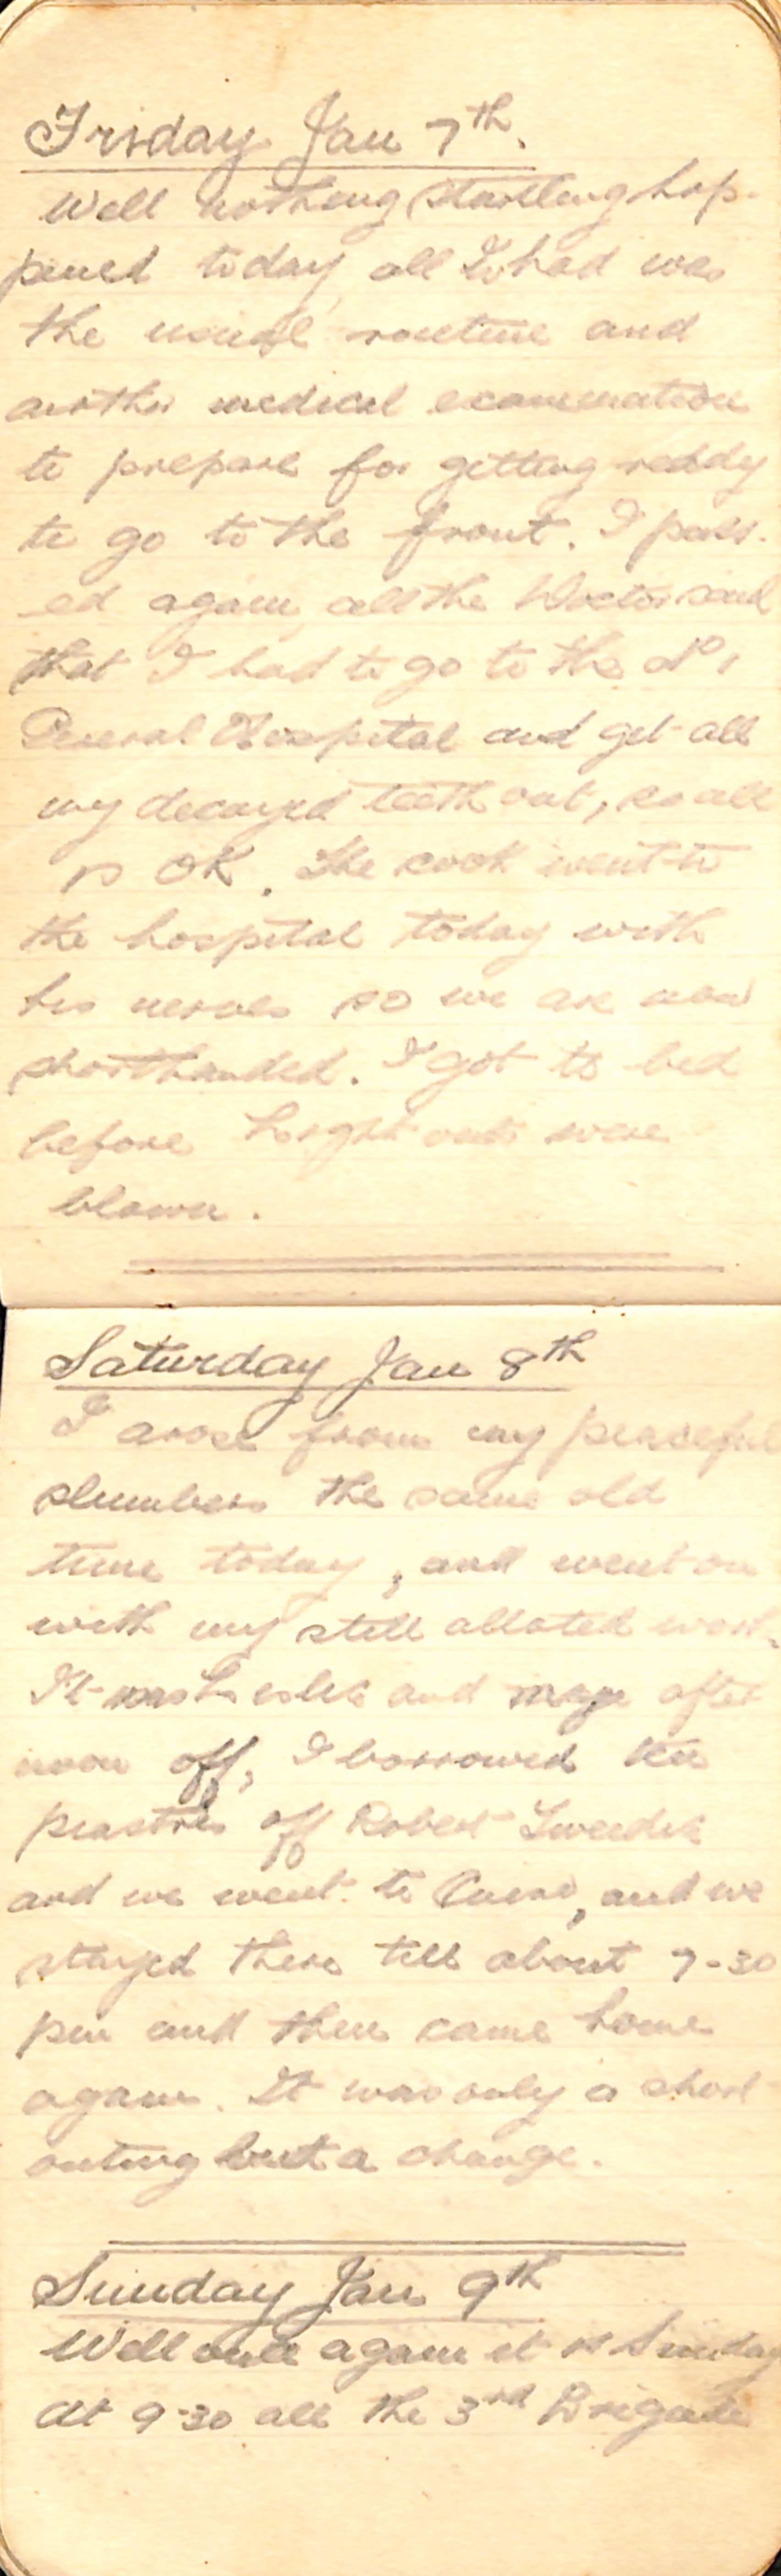 Friday Jan 7th.
Well nothing startling hap-
pened today, all I had was
the usual routine and
another medical examination
to prepare for getting reddy
to go to the front. I pass-
ed again, all the Doctor said
that I had to go to the No 1
General Hospital and get all
my decayed teeth out, so all
is OK. The cook went to
the hospital today with
his nerves so we are now
shorthanded. I got to bed
before Light outs were
blown.
Saturday Jan 8th
I arose from my peaceful
slumbers the same old
time today, and went on
with my still alloted work.
It was and my after
noon off, I borrowed ten
piastres off Robert
and we went to Cairo, and we
stayed there till about 7-30
pm and then came home
again. It was only a short
outing but a change.
Sunday Jan 9th
Well once again it is Sunday
At 9-30 all the 3rd Brigade